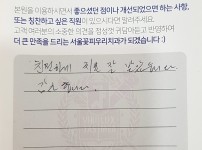 본원을 이용하시면서 좋으셨던 점이나 개선되었으면 하는 사항,
또는 칭찬하고 싶은 직원이 있으시다면 알려주세요.
고객 여러분의 소중한 의견을 정성껏 귀담아듣고 반영하며
더 큰 만족을 드리는 서울꽃피우리치과가 되겠습니다 :)
친절하게 치료 잘 받았습니다.
감사합니다.